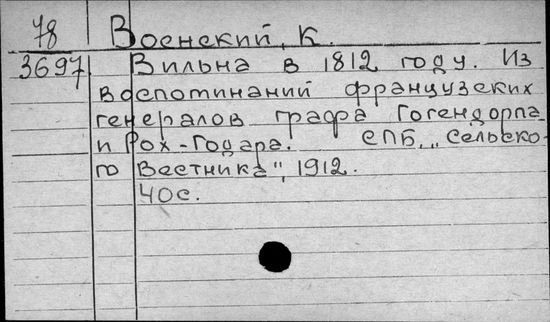 78 Военский, К.
3697 Вильна в 1812 году. Из
воспоминаний французских
генералов графа Гогендорпа
и Рох-Годара. СПБ, „Сельско-
го Вестника“, 1912.
40с.